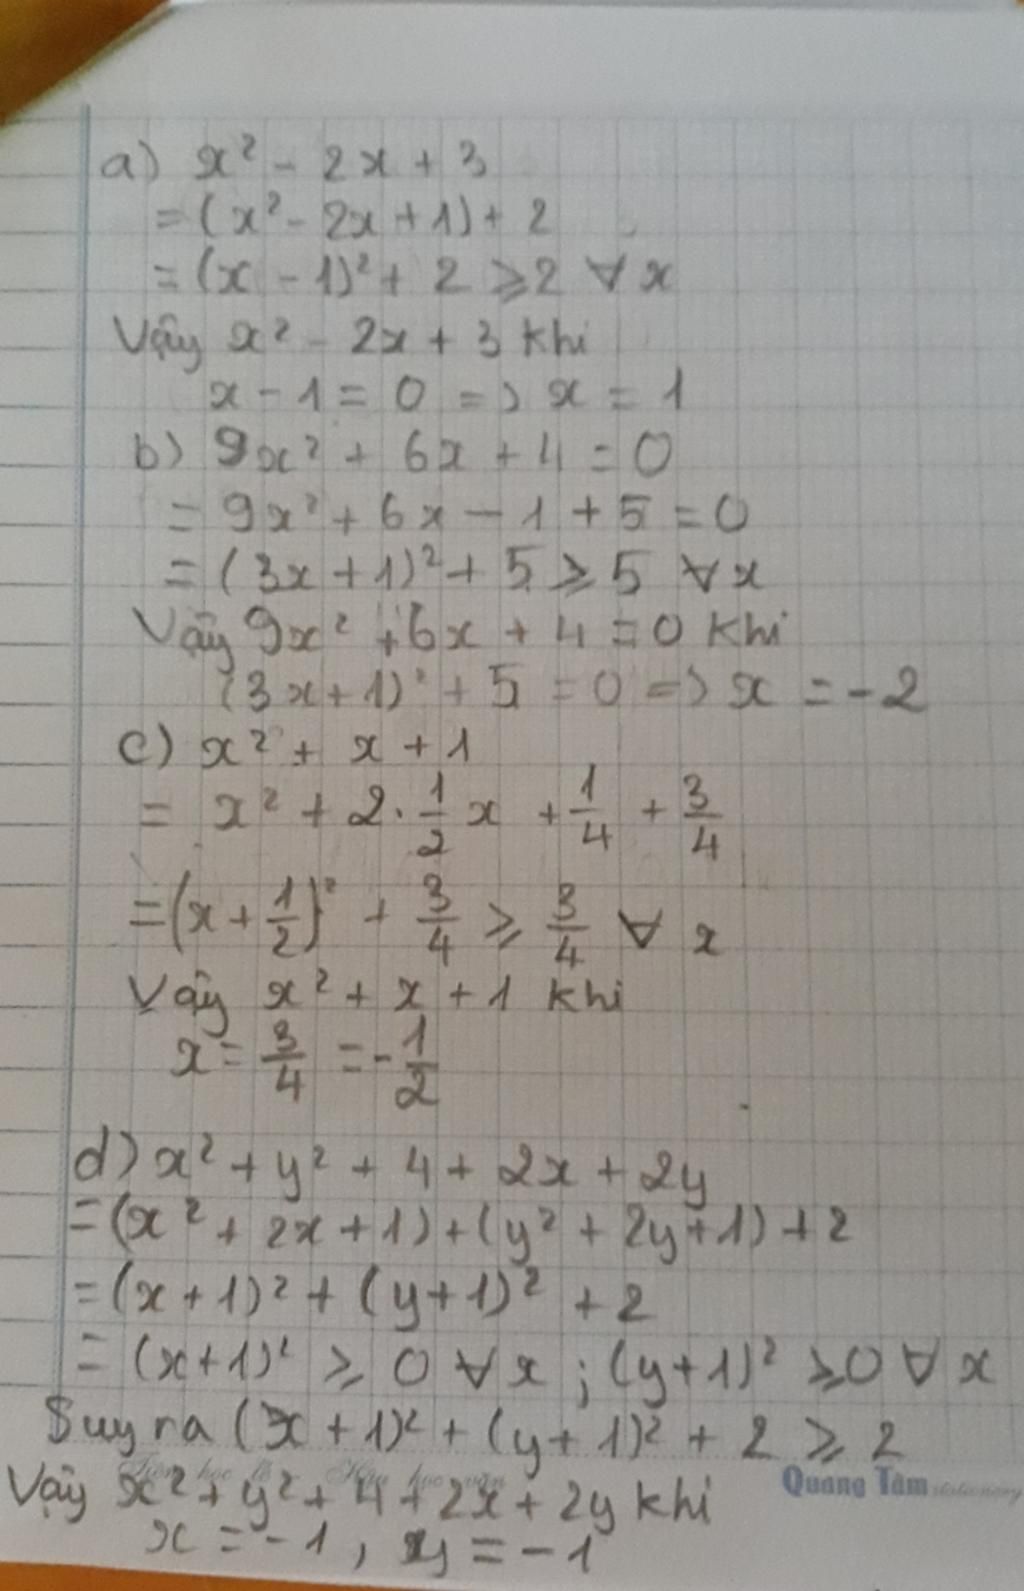 a) x² - 2x + 3
= (x² - 2x + 1) + 2
= (x - 1)² + 2 ⩾ 2 ∀ x
Vậy x² - 2x + 3 khi
x - 1 = 0 => x = 1
b) 9x² + 6x + 4 = 0
= 9x² + 6x - 1 + 5 = 0
= (3x + 1)² + 5 ⩾ 5 ∀ x
Vậy 9x² + 6x + 4 = 0 khi
(3x + 1)² + 5 = 0 => x = -2
c) x² + x + 1
= x² + 2.1/2 x + 1/4 + 3/4
= (x + 1/2)² + 3/4 ⩾ 3/4 ∀ x
Vậy x² + x + 1 khi
x = 3/4 = -1/2
d) x² + y² + 4 + 2x + 2y
= (x² + 2x + 1) + (y² + 2y + 1) + 2
= (x + 1)² + (y + 1)² + 2
= (x + 1)² ⩾ 0 ∀ x ; (y + 1)² ⩾ 0 ∀ x
Suy ra (x + 1)² + (y + 1)² + 2 ⩾ 2
Tiên học lễ Hậu học văn Quang Tâm stationery
Vậy x² + y² + 4 + 2x + 2y khi
x = -1, y = -1